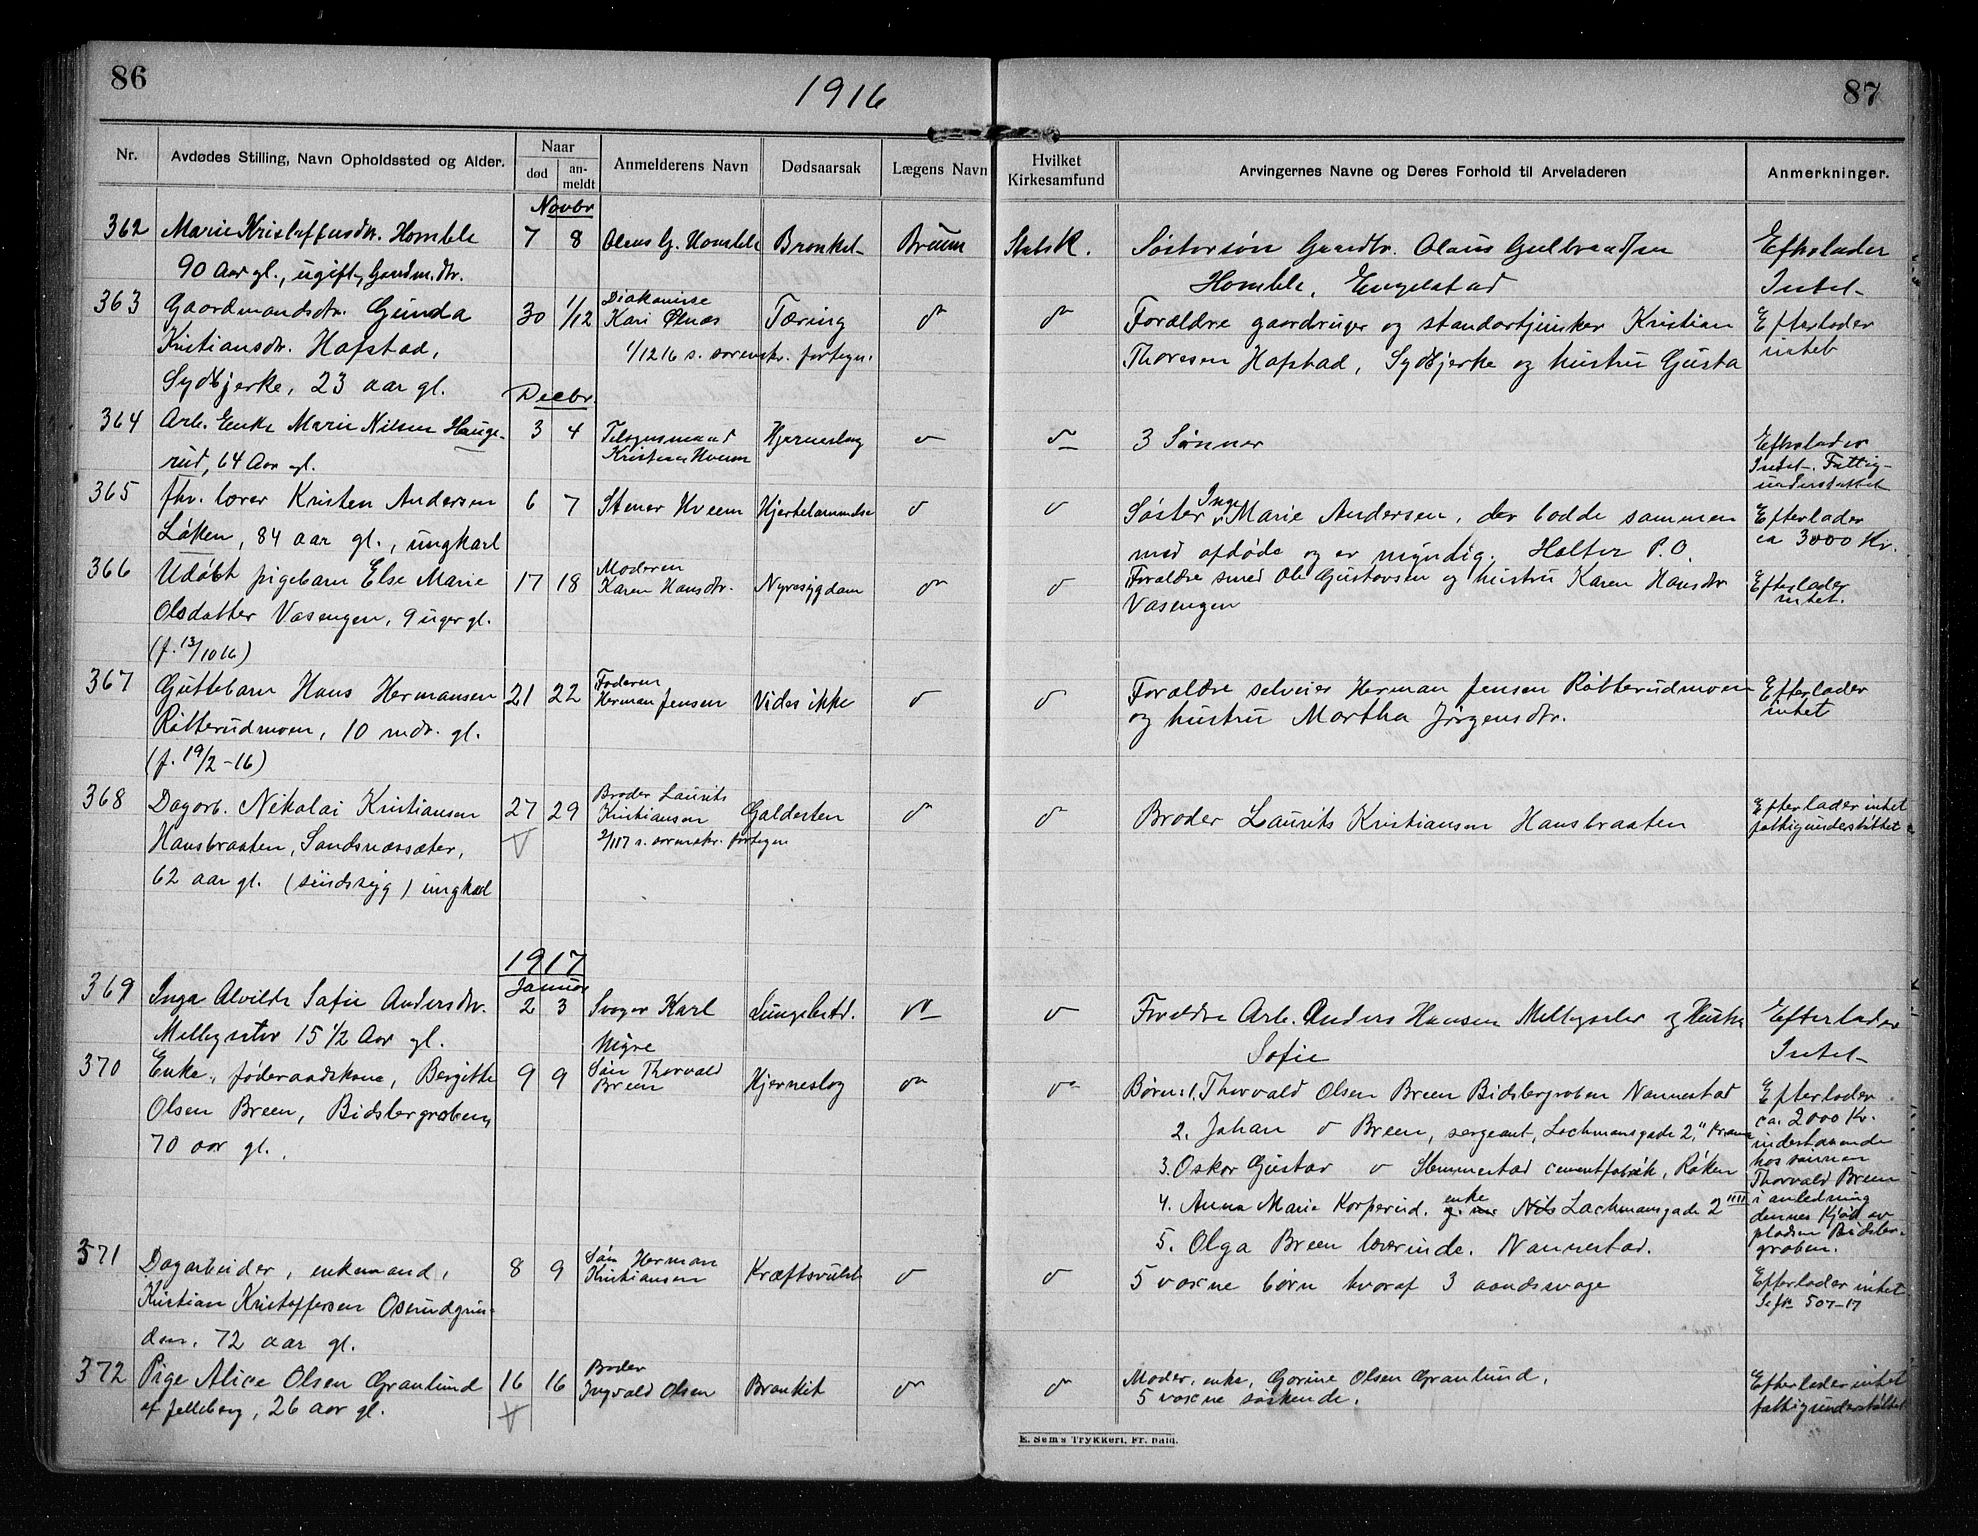 86
1916
87
Nr. Avdødes Stilling, Navn Opholdssted og Alder. Naar død an-meldt Anmelderens Navn Dødsaarsak Lægens Navn Hvilket Kirkesamfund Arvingernes Navne og Deres Forhold til Arveladeren Anmerkninger.
Novbr
362 Marie Kristoffersdtr. Homble 7 8 Olaus G. Homble Bronkit Bruun Statsk. Søstersøn Gaardbr. Olaus Gulbrandsen Efterlader
90 Aar gl., ugift, Gaardm.dtr. Homble, Engelstad Intet
363 Gaardmandsdtr. Gunda 30 1/12 Diakonisse
Kari Ølnæs Tæring " " Forældre gaardbruger og Kristian Efterlader
Kristiansdtr. Hafstad, 1/12 16 s. sorenskr. fortegn. Thoresen Hafstad, Sydbjerke og hustru Gusta intet
Sydbjerke, 23 aar gl.
Decbr.
364 Arb. Enke Marie Nilsen Hauge- 3 4 Tilsynsmand Hjerneslag " " 3 Sønner Efterlader
rud, 64 Aar gl. Kristian Hveem Intet. Fattig-
understøttet
365 fhv. lærer Kristen Andersen 6 7 Stener Hveem Hjertelammelse " " Søster Inge Marie Andersen, der bodde sammen Efterlader
Løken, 84 aar gl., ungkarl med afdøde og er myndig. Holter P.O. ca 3000 Kr.
366 Udøbt pigebarn Else Marie 17 18 Moderen
Karen Hansdtr. Nyresygdom " " Forældre smed Ole Gustavsen og hustru Karen Hansdtr Efterlader
Olsdatter Vasengen, 9 uger gl. Vasengen intet.
(f. 13/10 16)
367 Guttebarn Hans Hermansen 21 22 Faderen
Herman Jensen Vides ikke " " Forældre selveier Herman Jensen Rotterudmoen Efterlader
Rotterudmoen, 10 mdr. gl. og hustru Martha Jørgensdtr. intet
(f. 19/2-16)
368 Dagarb. Nikolai Kristiansen 27 29 Broder Laurits
Kristiansen Galdesten " " Broder Laurits Kristiansen Hansbraaten Efterlader intet
Hansbraaten, Sandsnæssæter, 2/1 17 s. sorenskr. fortegn fattigunderstøttet
62 aar gl. (sindssyg) ungkarl
1917
Januar
369 Inga Alvilde Sofie Andersdtr. 2 3 Svoger Karl Lungebetd. " " Forældre Arb. Anders Hansen og Hustru Efterlader
15 1/2 Aar gl. Myre Sofie Intet
370 Enke, føderaadskone, Bergitte 9 9 Søn Thorvald
Breen Hjerneslag " " Børn: 1. Thorvald Olsen Breen Bidsbergroben Nannestad Efterlader
Olsen Breen, Bidsbergroben, 2. Johan " Breen, sergeant, Lachmansgade 2, " Krania ca. 2000 Kr.
70 aar gl. indestaaende
3. Oskar Gustav " Slemmestad cementfabrik, Røken hos sønnen
Thorvald Breen
4. Anna Marie Korperud. enke Lachmansgade 2 IIII i anledning
dennes Kjøb av
5. Olga Breen lærerinde. Nannestad. pladsen Bidsber-
groben.
371 Dagarbeider, enkemand, 8 9 Søn Herman
Kristiansen Kræftsvulst " " 5 voxne børn hvoraf 3 aandssvage Efterlader intet
Kristian Kristoffersen Oserudgrin- 507-17
den, 72 aar gl.
372 Pige Alice Olsen Granlund 16 16 Broder
Ingvald Olsen Bronkit " " Moder, enke, Gorine Olsen Granlund, Efterlader intet
af Jelleberg, 26 aar gl. 5 voxne søskende. fattigunderstøttet
E. Sem's Trykkeri, Fr. hald.